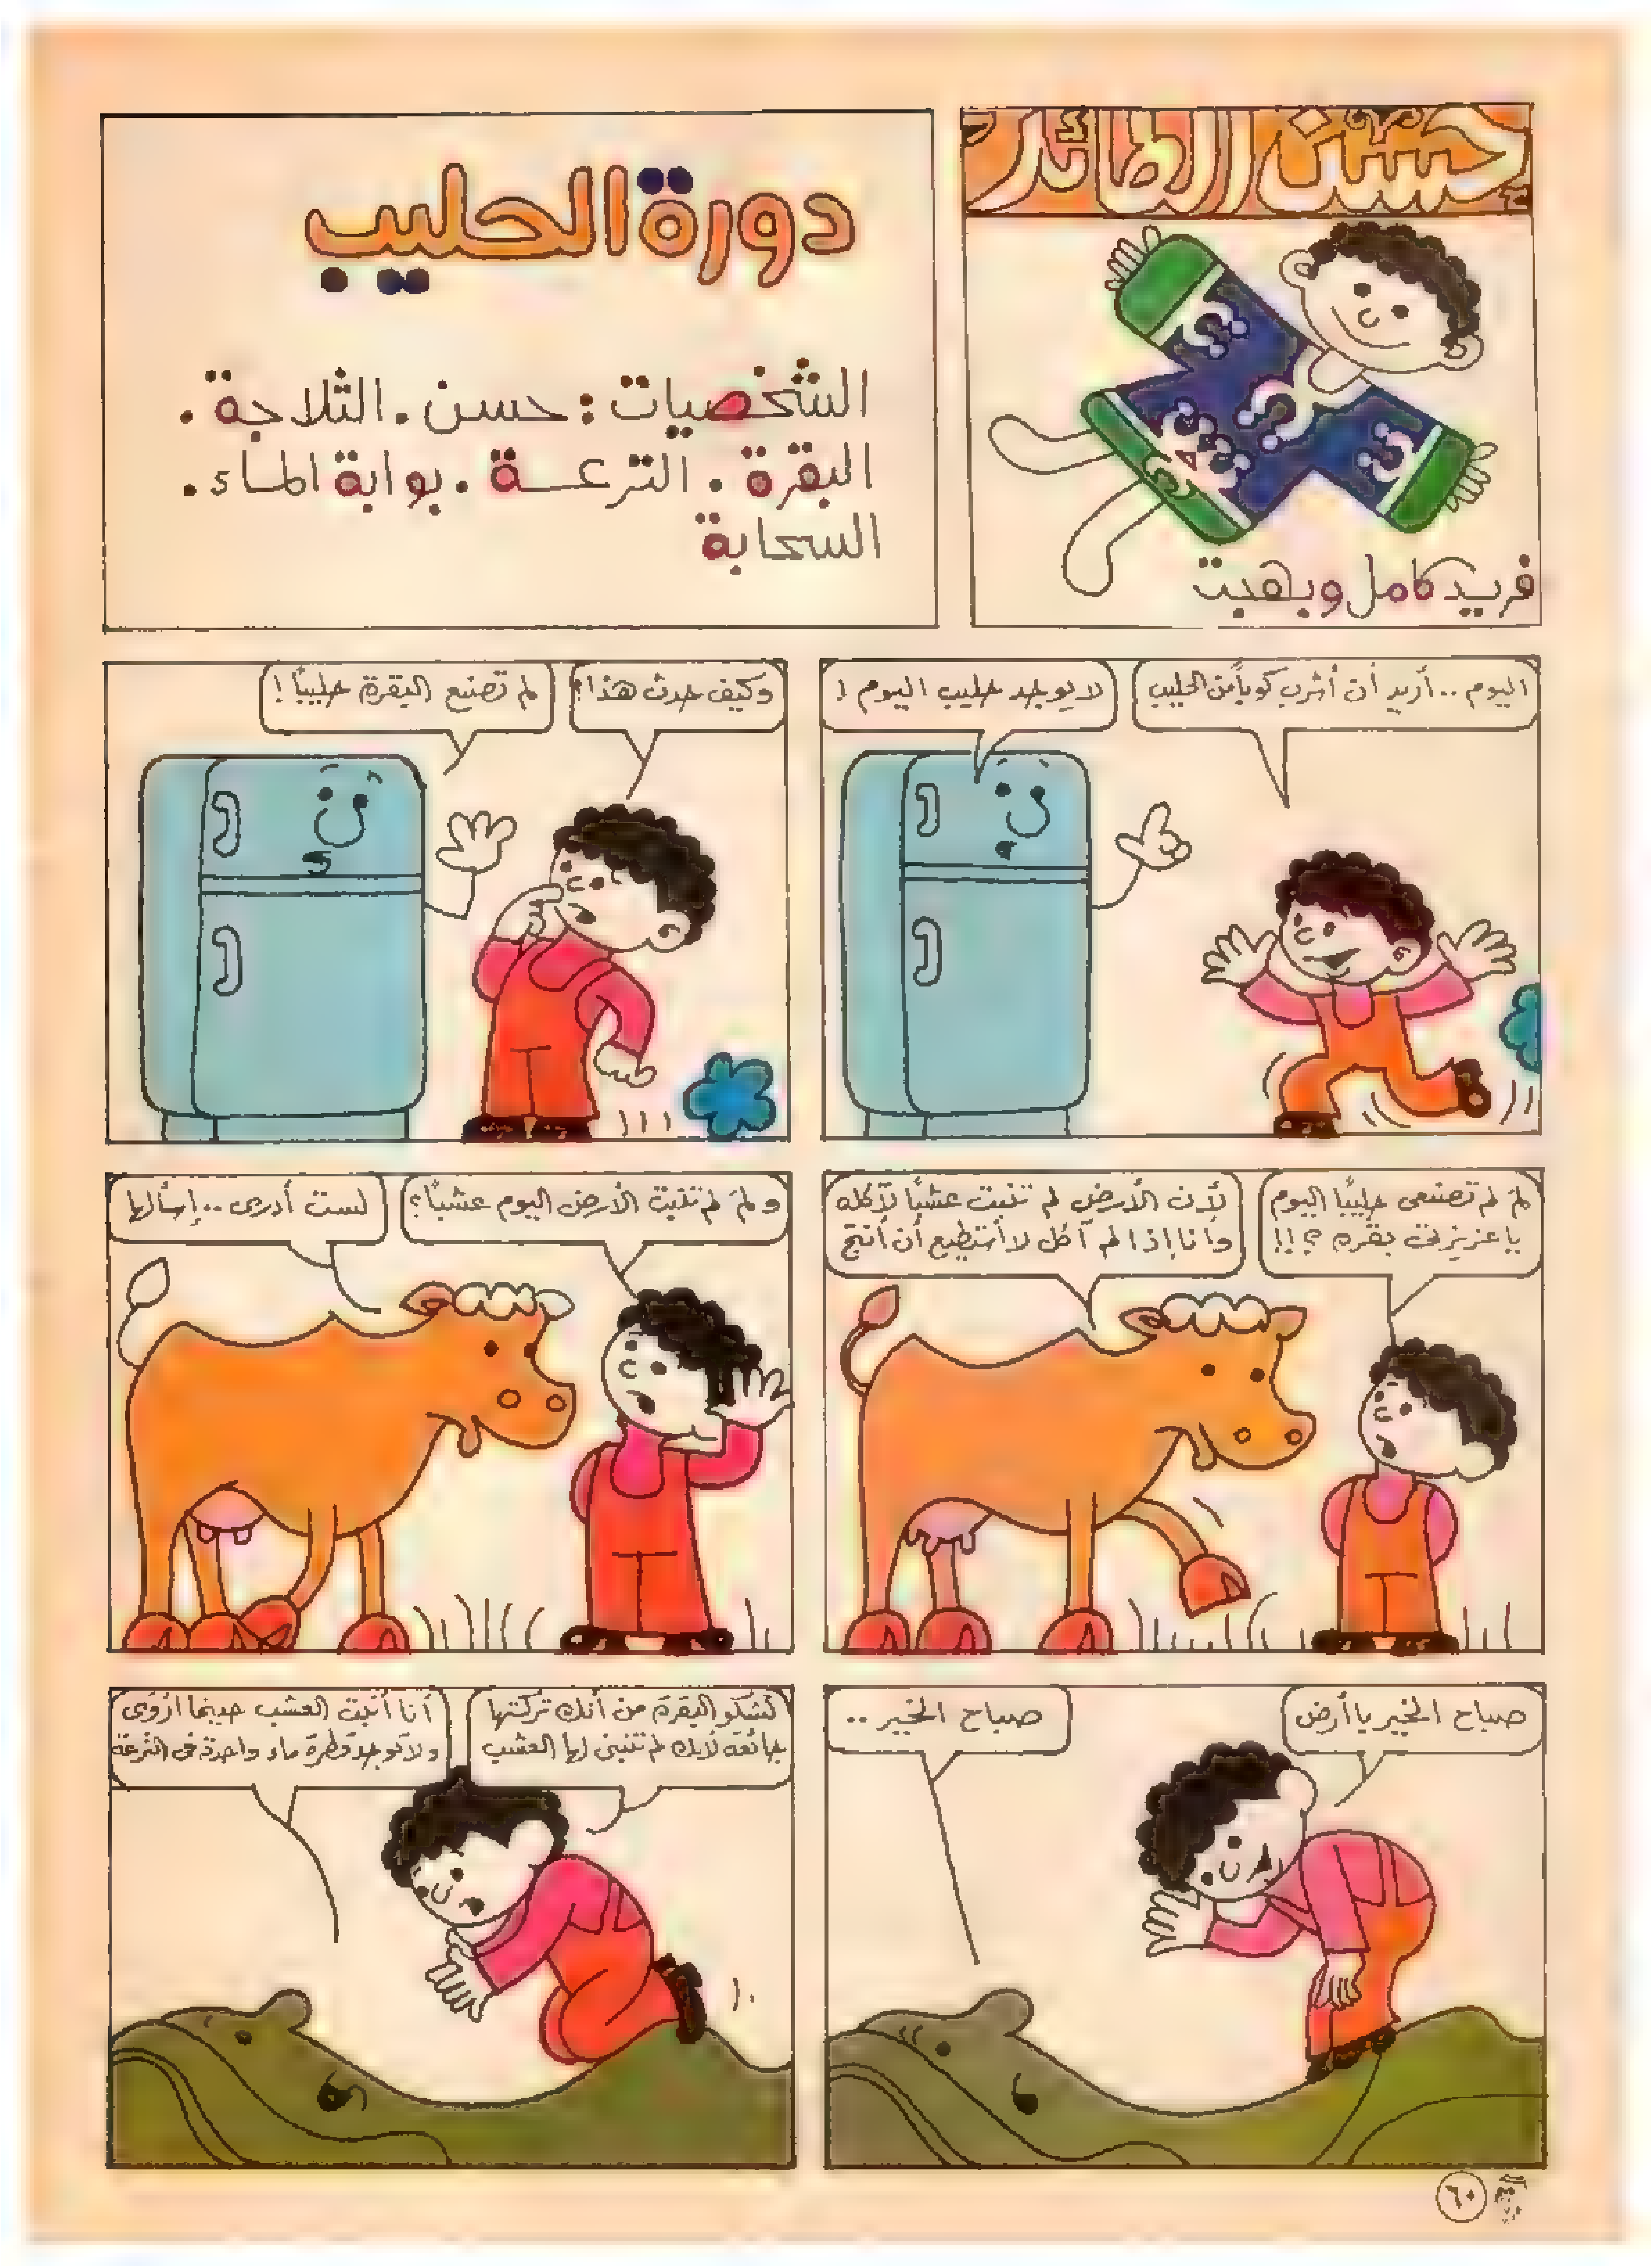 حسن الطائر
فريد كامل وبهجت
دورة الحليب
الشخصيات : حسن . الثلاجة .
البقرة . الترعة . بوابة الماء .
السحابة
اليوم .. أريد أن أشرب كوباً من الحليب
لا يوجد حليب اليوم !
وكيف حدث هذا ؟
لم تصنع البقرة حليبًا !
لمَ لم تصنعى حليبًا اليوم
يا عزيزتى بقره ؟!!
لأن الأرض لم تنبت عشبًا لآكله
وأنا إذا لم آكل لا أستطيع أن أنتج
ولمَ لم تنبت الأرض اليوم عشبًا؟
لست أدرى .. إسألها
صباح الخير يا أرض
صباح الخير ..
تشكو البقرة من أنك تركتها
جائعة لأنك لم تنبتى لها العشب
أنا أنبت العشب حينما أروى
ولا توجد قطرة ماء واحدة فى الترعة
٦٠